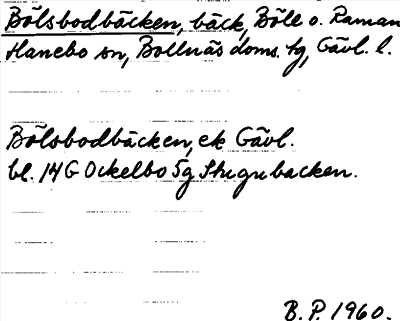 Bölsbodbäcken, bäck, Böle o. Raman
Hanebo sn, Bollnäs doms. tg, Gävl. l.
Bölsbodbäcken, ek Gävl.
bl. 14G Ockelbo 5g Stugubacken.
B.P. 1960.